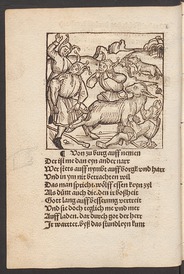 ¶ Von zu borg auff nemen
Der ist me dan eyn ander narr
Wer stets auff nymbt auff borg und harr
Und in ym nit betrachten will
Das man spricht, wölff essen keyn zyl
Als dünt auch die, den ir boßheit
Gott lang auff besserung vertreit
Und sie doch teglich me und mer
Auff laden, dar durch got der herr
Ir wartet, byß das stündleyn kum